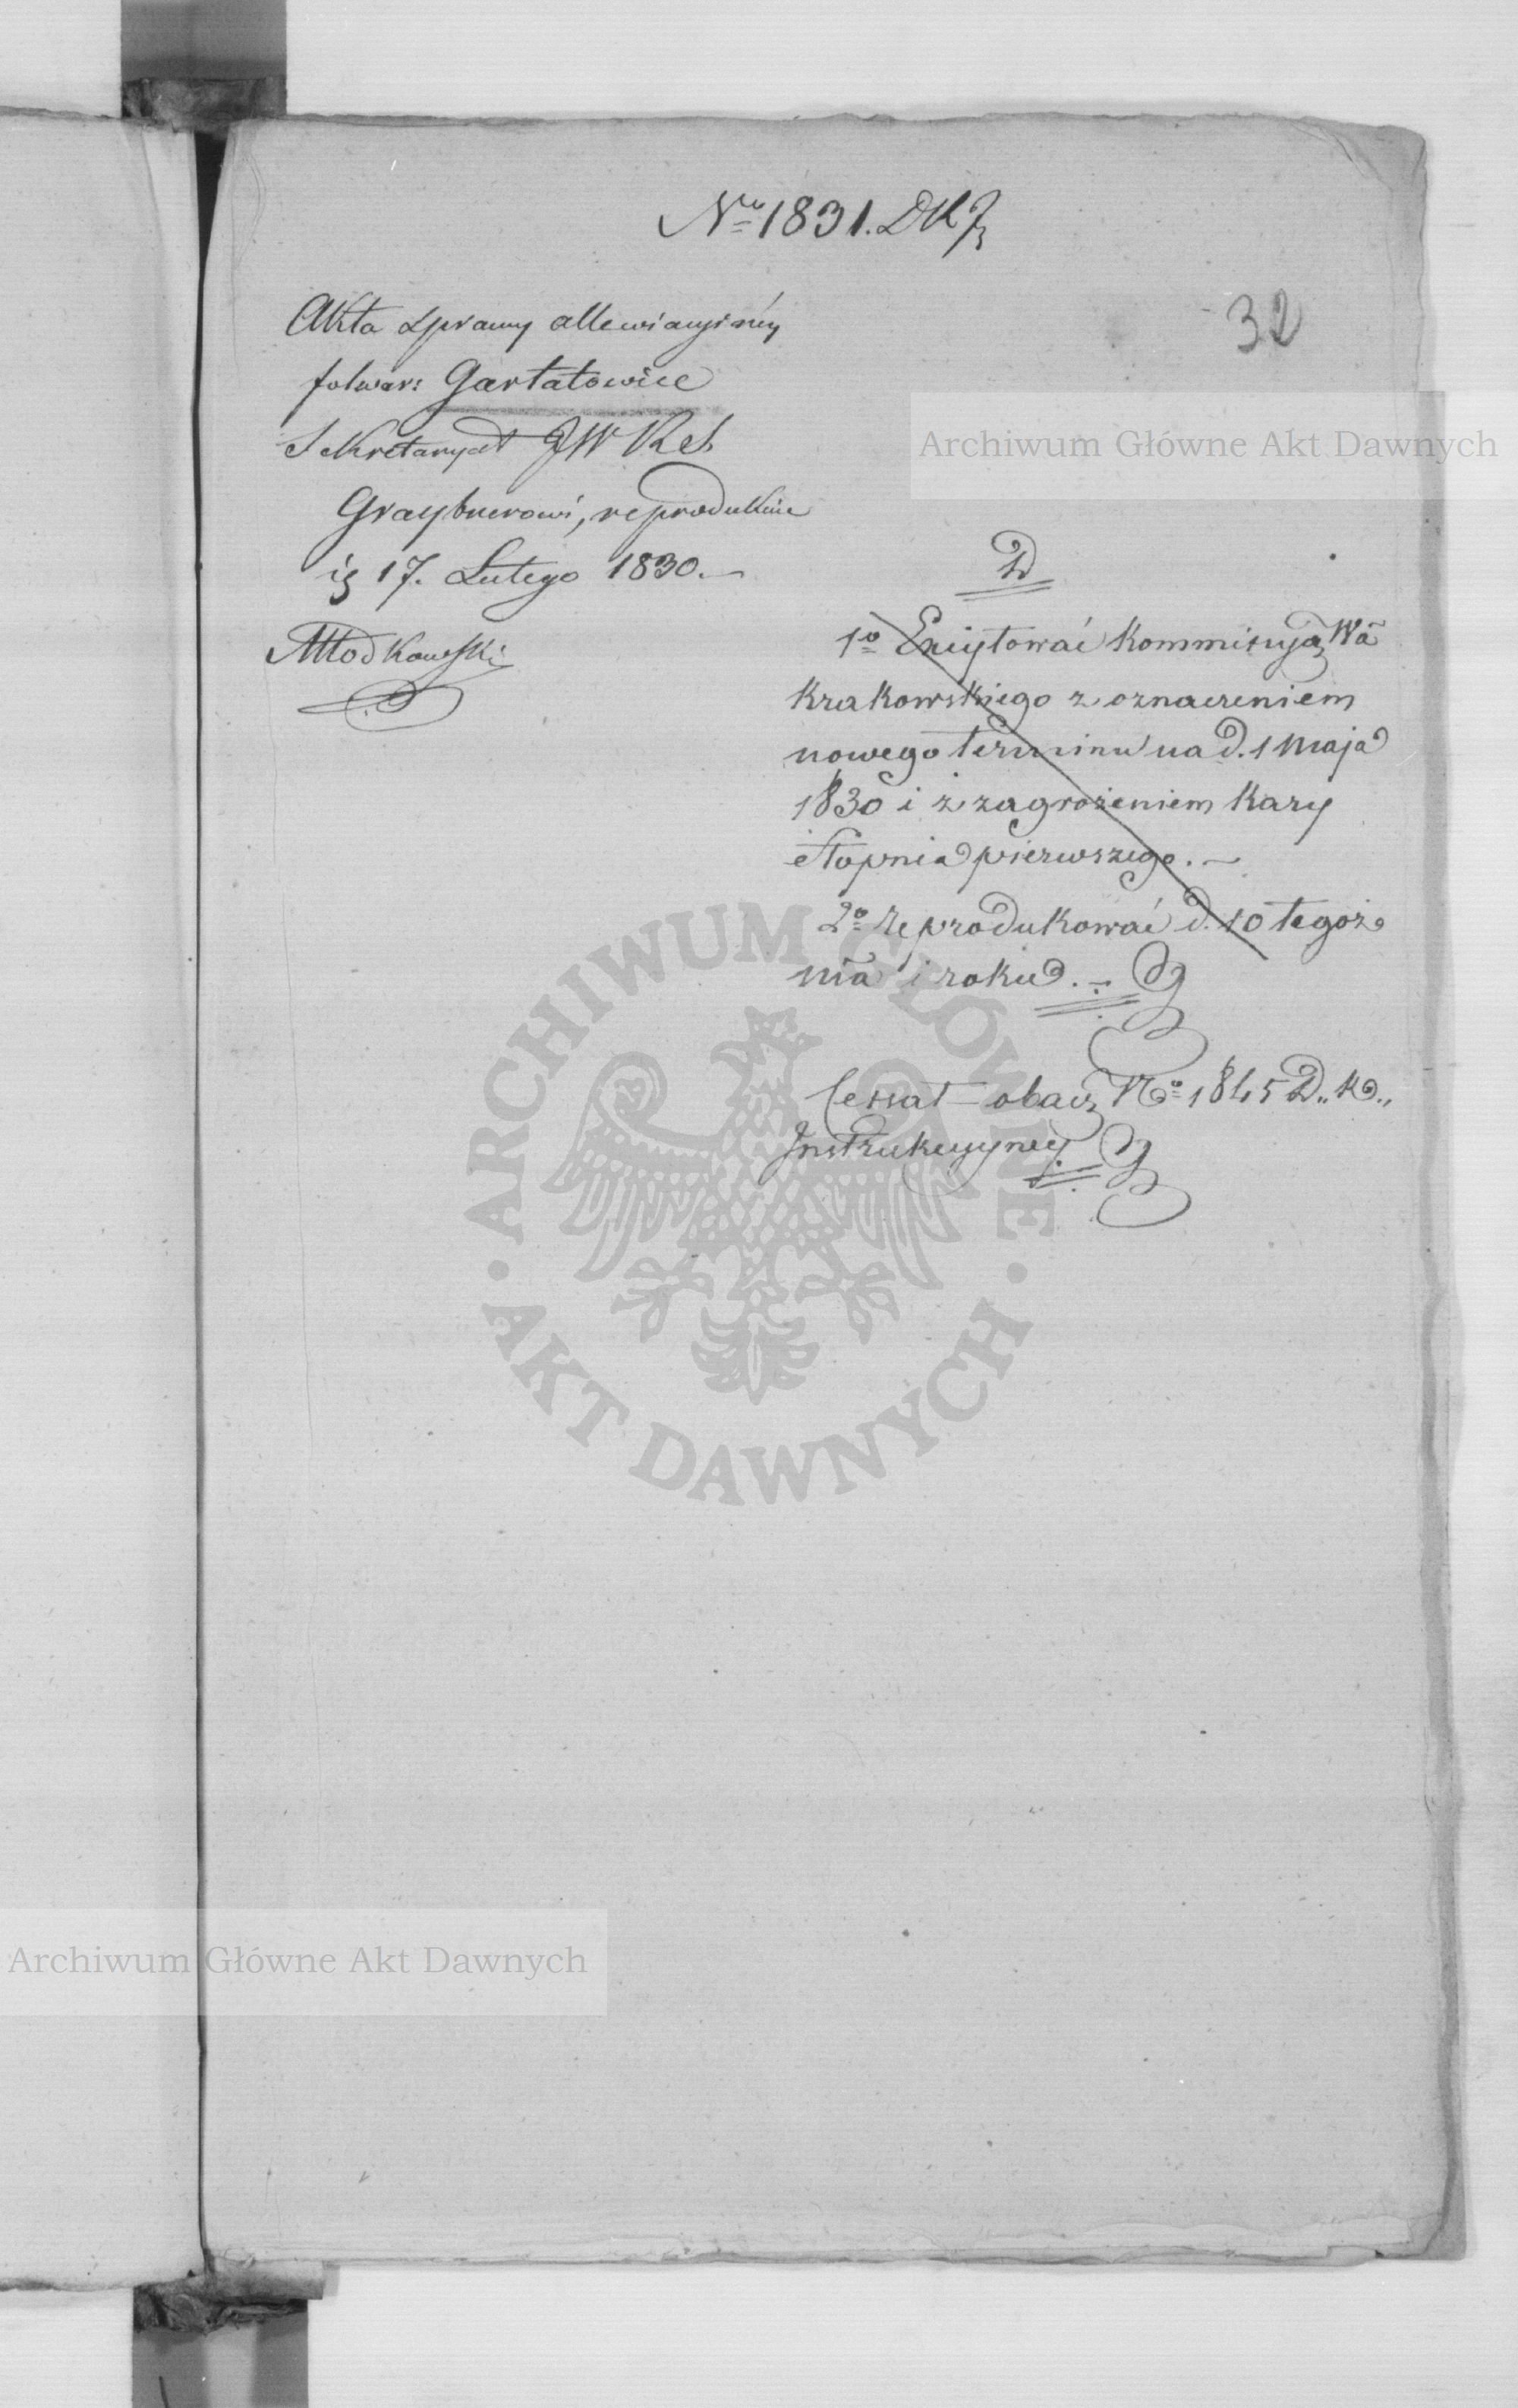 Nro 1831. DKJ
32
Akta sprawy allewiacyinéy
folwar: Gartatowice
Sekretaryat JW Ref.
Graybnerowi, reprodukuie
is 17. Lutego 1830.—
Młodkowski
D
1o Excytować Kommissyją Wa
Krakowskiego z oznaczeniem
nowego terminu na d. 1 Maja
1830 i z zagrożeniem Kary
stopnia pierwszego. —
2o Reprodukować d. 10 tegoż
mca i roku. —
Cessat obacz No 1845 D. K.
Instrukcyyney
Archiwum Główne Akt Dawnych
ARCHIWUM GŁÓWNE AKT DAWNYCH
Archiwum Główne Akt Dawnych